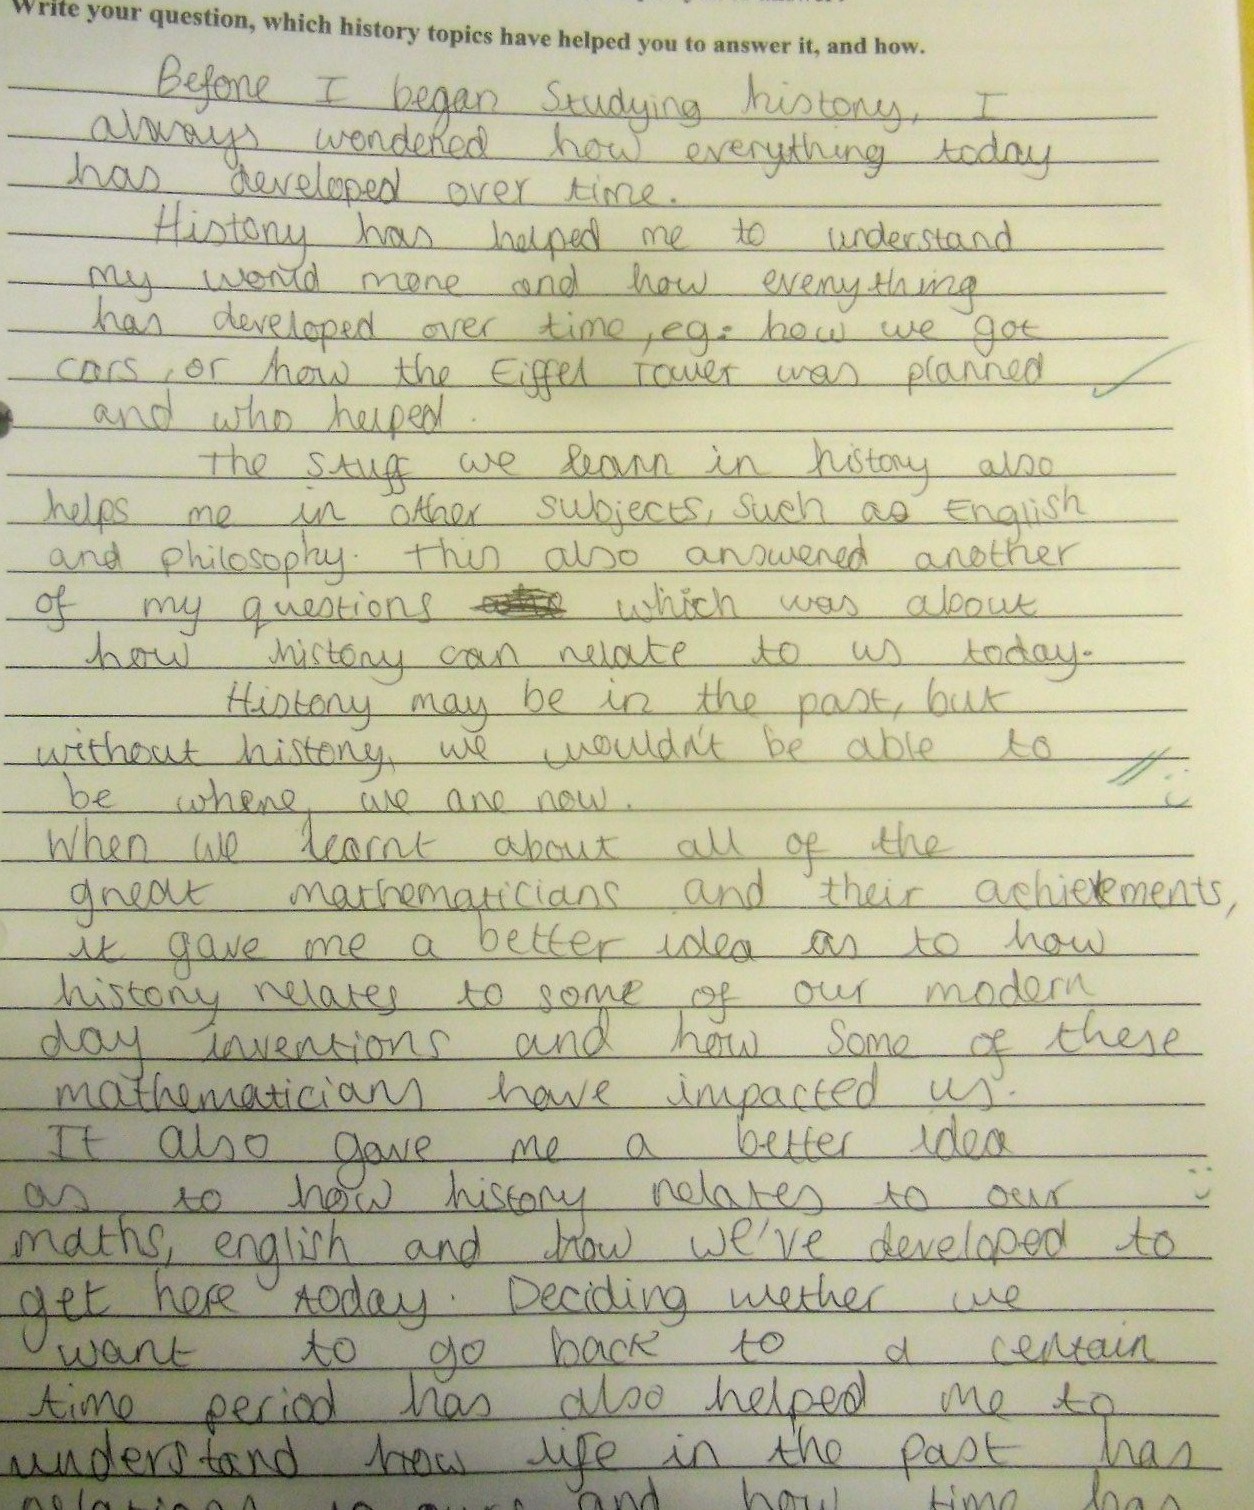 Write your question, which history topics have helped you to answer it, and how.
Before I began studying history, I
always wondered how everything today
has developed over time.
History has helped me to understand
my world more and how everything
has developed over time, eg: how we got
cars, or how the Eiffel Tower was planned
and who helped.
The stuff we learn in history also
helps me in other subjects, such as English
and philosophy. This also answered another
of my questions which was about
how history can relate to us today.
History may be in the past, but
without history, we wouldn't be able to
be where we are now.
When we learnt about all of the
great mathematicians and their achievements,
it gave me a better idea as to how
history relates to some of our modern
day inventions and how some of these
mathematicians have impacted us.
It also gave me a better idea
as to how history relates to our
maths, english and how we've developed to
get here today. Deciding wether we
want to go back to a certain
time period has also helped me to
understand how life in the past has
relations to ours and how time has